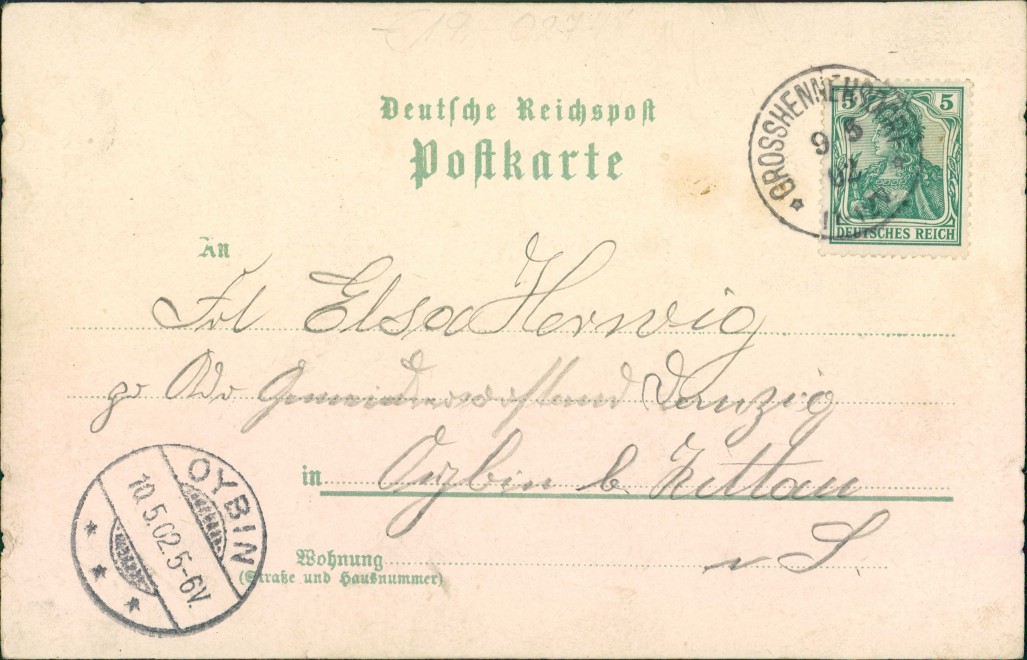 Deutsche Reichspost
Postkarte
GROSSHENNERSDORF
9 5
02
5 5
DEUTSCHES REICH
An
Frl Elsa Herwig
pr Adr Gemeindevorstand Danzig
in Oybin b. Zittau
i S.
Wohnung
(Straße und Hausnummer)
OYBIN
10.5.02.5-6V.